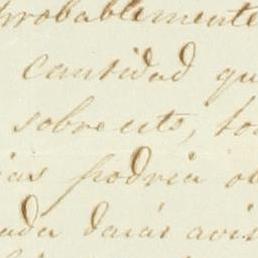 probablemente
cantidad qu
sobre esto, to
ias podria o
ada darás avis